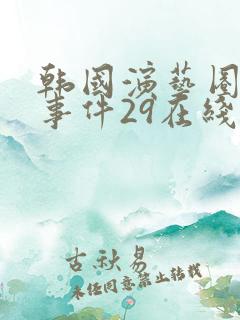 韩国演艺圈
事件29在线
古秋易
未经同意禁止转载